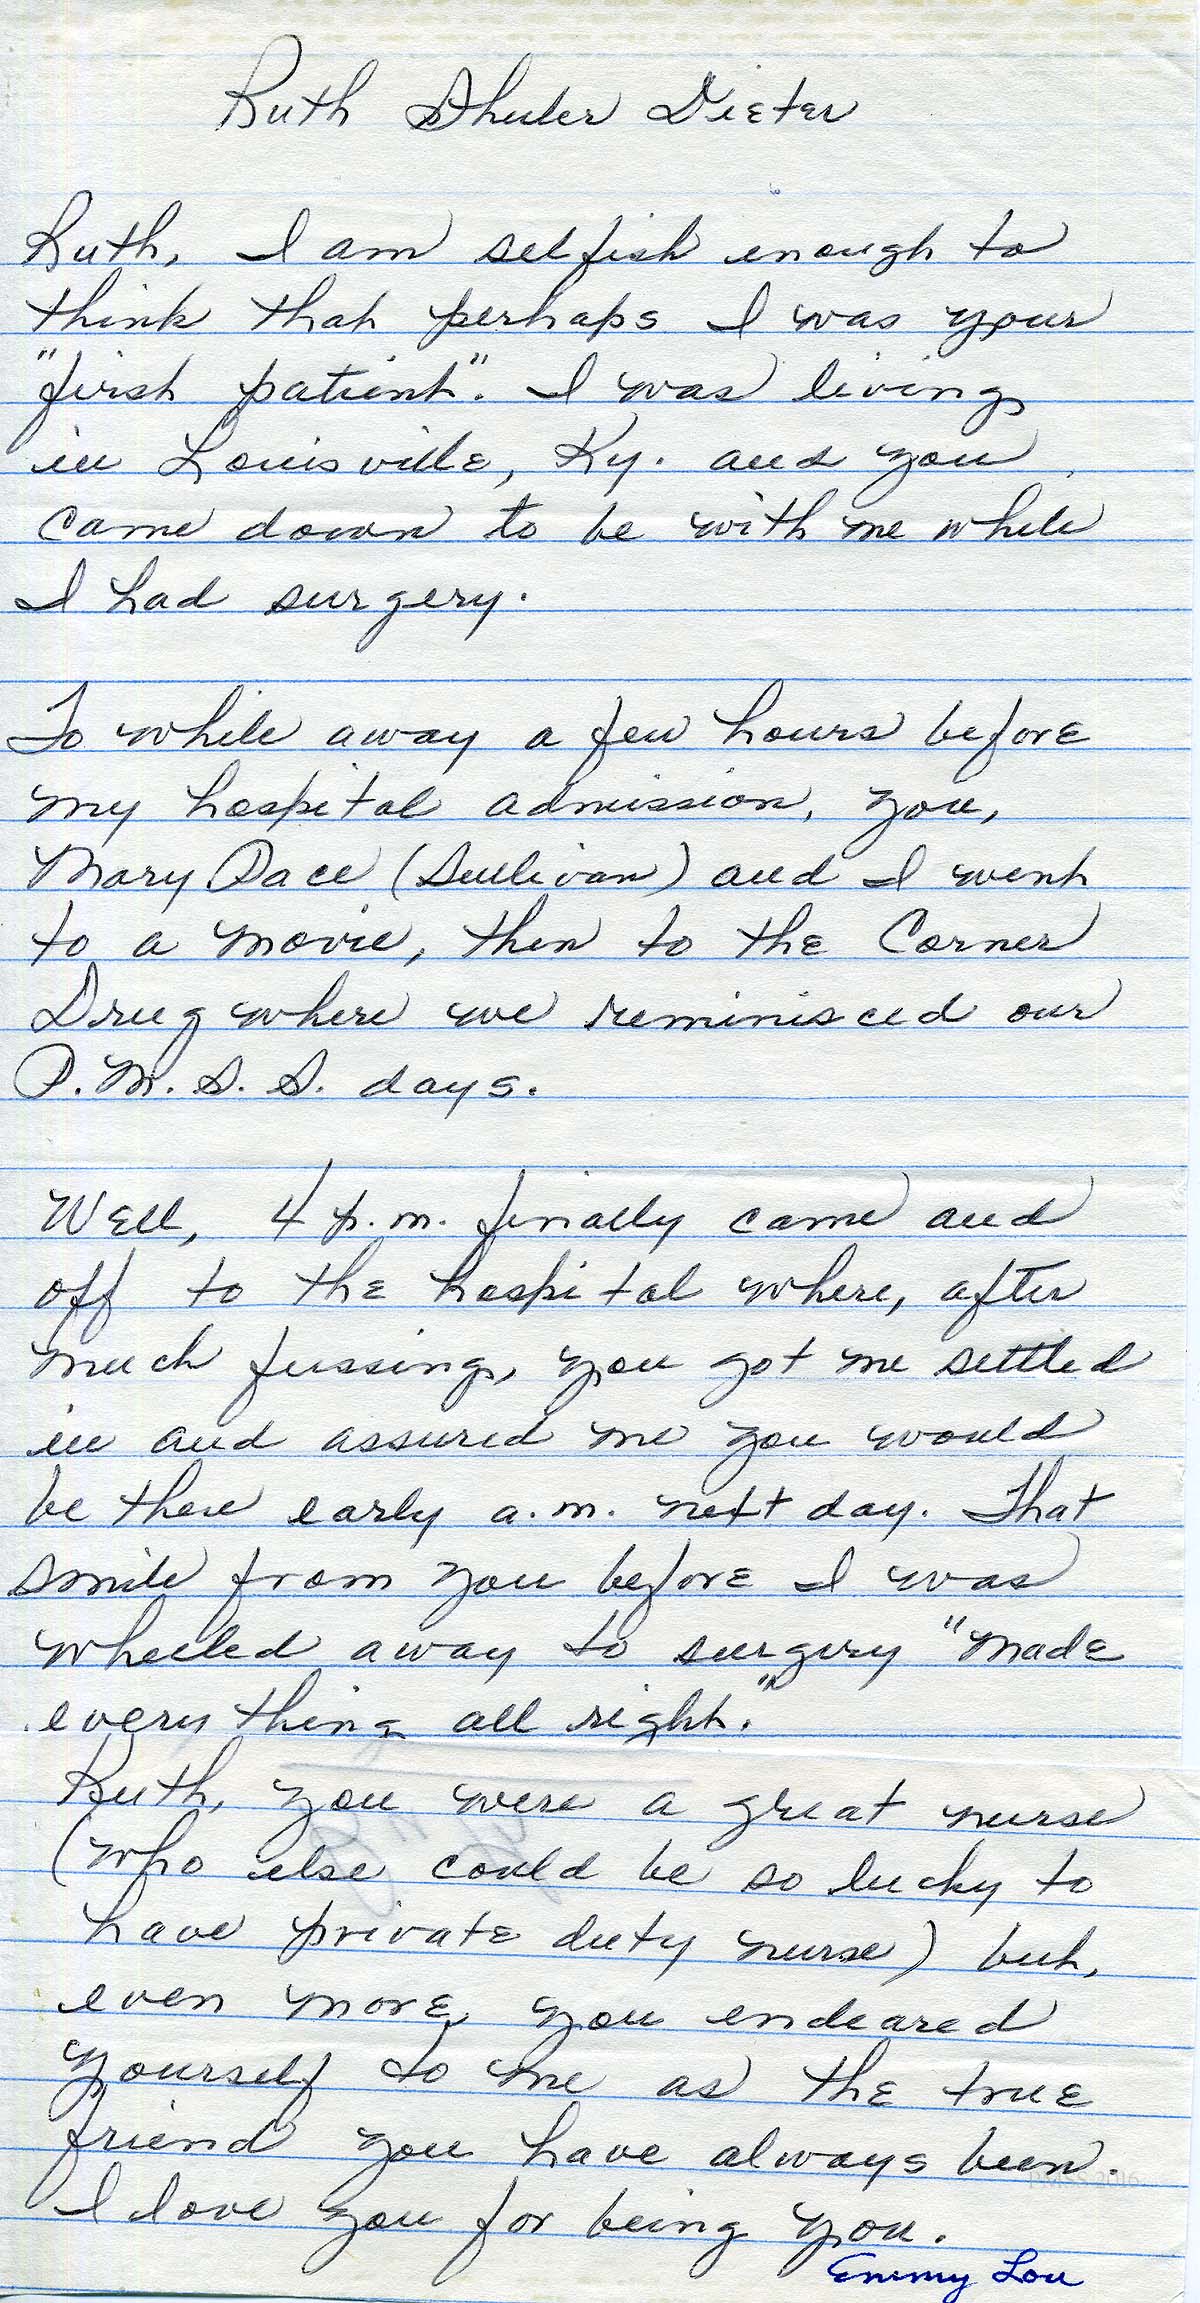 Ruth Shuler Dieter
Ruth, I am selfish enough to
think that perhaps I was your
"first patient". I was living
in Louisville, Ky. and you
came down to be with me while
I had surgery.
To while away a few hours before
my hospital admission, you,
Mary Pace (Sullivan) and I went
to a movie, then to the Corner
Drug where we reminisced our
P.M.S.S. days.
Well, 4 p.m. finally came and
off to the hospital where, after
much fussing, you got me settled
in and assured me you would
be there early a.m. next day. That
smile from you before I was
wheeled away to surgery "made
everything all right."
Ruth, you were a great nurse
(who else could be so lucky to
have private duty nurse) but,
even more, you endeared
yourself to me as the true
friend you have always been.
I love you for being you.
Emmy Lou